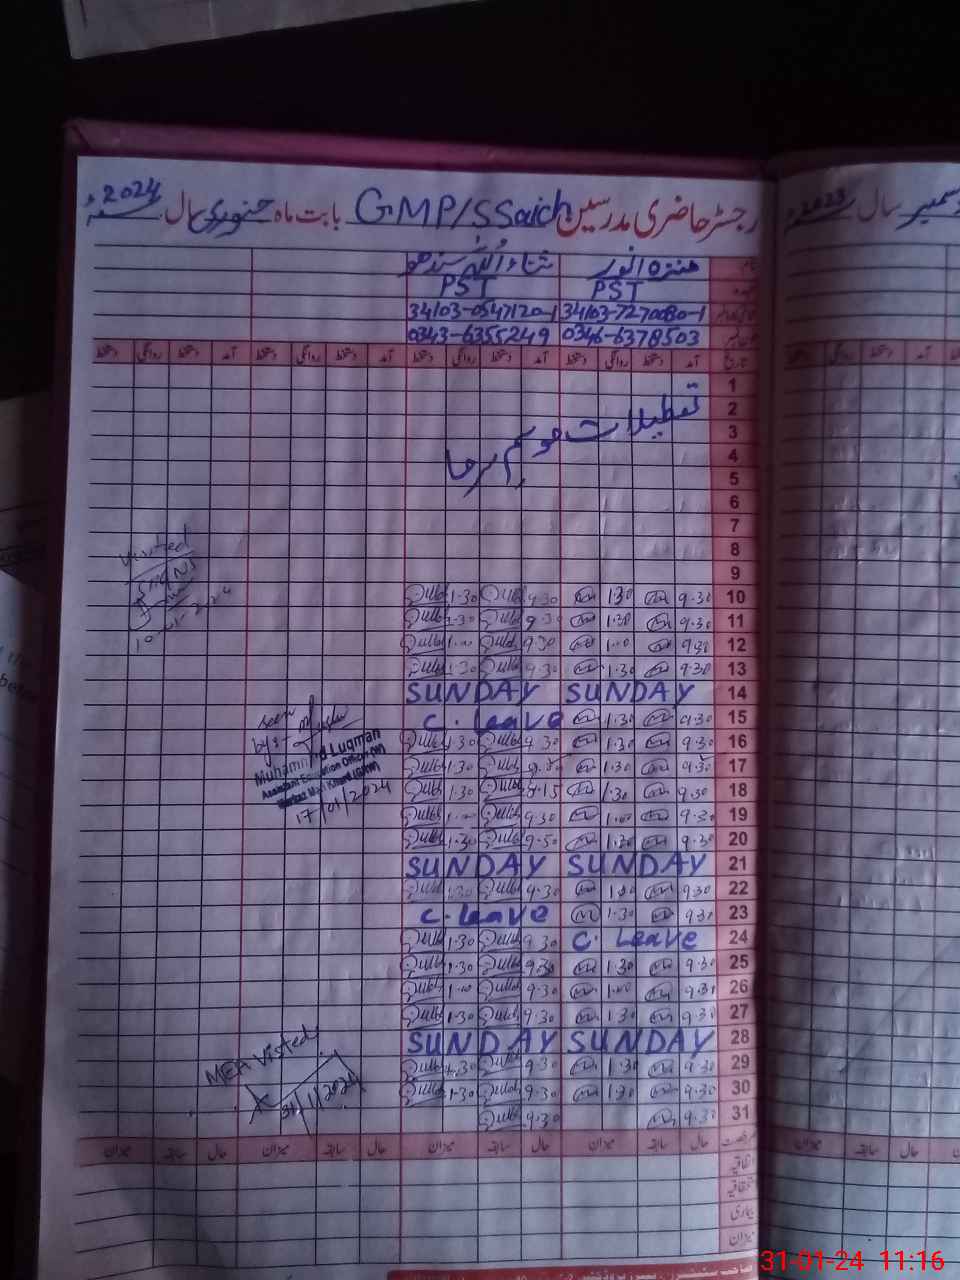 رجسٹر حاضری مدرسین GMP/S Saich بابت ماہ جنوری سال 2024ء
سال 2023ء
ثناء اللہ سندھو
PST PST
34103-0547120-1 34103-7270080-1
0343-6355249 0346-6378503
تاریخ آمد دستخط روانگی دستخط آمد دستخط روانگی دستخط آمد دستخط روانگی دستخط آمد دستخط روانگی دستخط
1
2 تعطیلات موسم سرما
3
4
5
6
7
8
9
Visited
10-01-2024
1.30 9.30 1.30 9.30 10
1.30 9.30 1.30 9.30 11
1.00 9.30 1.00 9.30 12
1.30 9.30 1.30 9.30 13
SUNDAY SUNDAY 14
C. leave 1.30 9.30 15
1.30 9.30 1.30 9.30 16
1.30 1.30 9.30 17
1.30 9.15 1.30 9.30 18
1.00 9.30 1.00 9.30 19
1.30 9.30 20
SUNDAY SUNDAY 21
1.30 9.30 9.30 22
C. leave 1.30 9.30 23
1.30 9.30 C. Leave 24
1.30 9.30 1.30 9.30 25
1.00 9.30 1.00 9.30 26
1.30 9.30 1.30 9.30 27
SUNDAY SUNDAY 28
1.30 9.30 1.30 9.30 29
1.30 9.30 1.30 9.30 30
9.30 9.30 31
seen
by:-
Muhammad Luqman
Assistant Education Officer (M)
17/01/2024
MEA Visted
31/1/2024
حال سابقہ میزان حال سابقہ میزان حال سابقہ میزان حال سابقہ میزان
اتفاقیہ
بیماری
میزان
31-01-24 11:16